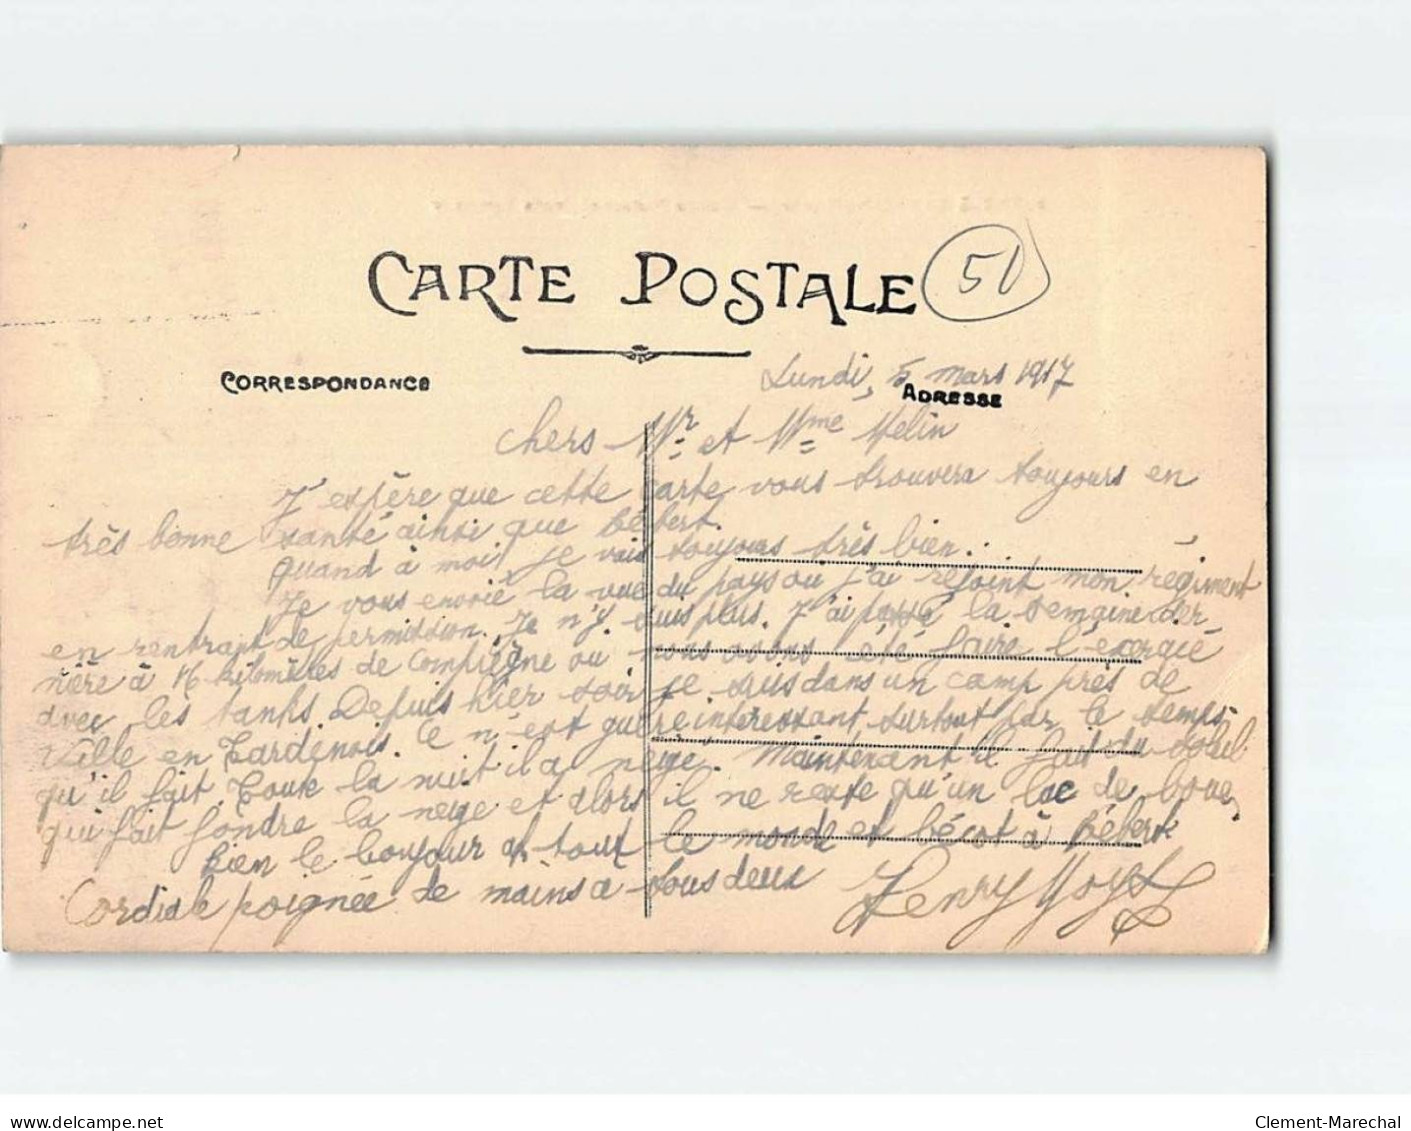 CARTE POSTALE
51
CORRESPONDANCE
Lundi, 5 mars 1917
ADRESSE
Chers Mr et Mme Melin
J'espère que cette carte vous trouvera toujours en
très bonne santé ainsi que Bébert.
Quand à moi, je vais toujours très bien.
Je vous envoie la vue du pays ou j'ai rejoint mon régiment
en rentrant de permission. Je n'y suis plus. J'ai passé la semaine der
nière à 16 kilomètres de Compiègne ou nous avons été faire l'exercice
avec les tanks. Depuis hier soir je suis dans un camp près de
Ville en Tardenois. Ce n'est guère interessant surtout par le temps
qu'il fait. Toute la nuit il a neigé. Maintenant il fait du soleil
qui fait fondre la neige et alors il ne reste qu'un lac de boue,
Bien le bonjour à tout le monde et bécot à Bébert
Cordiale poignée de mains à tous deux
Henry
Clement-Marechal
www.delcampe.net